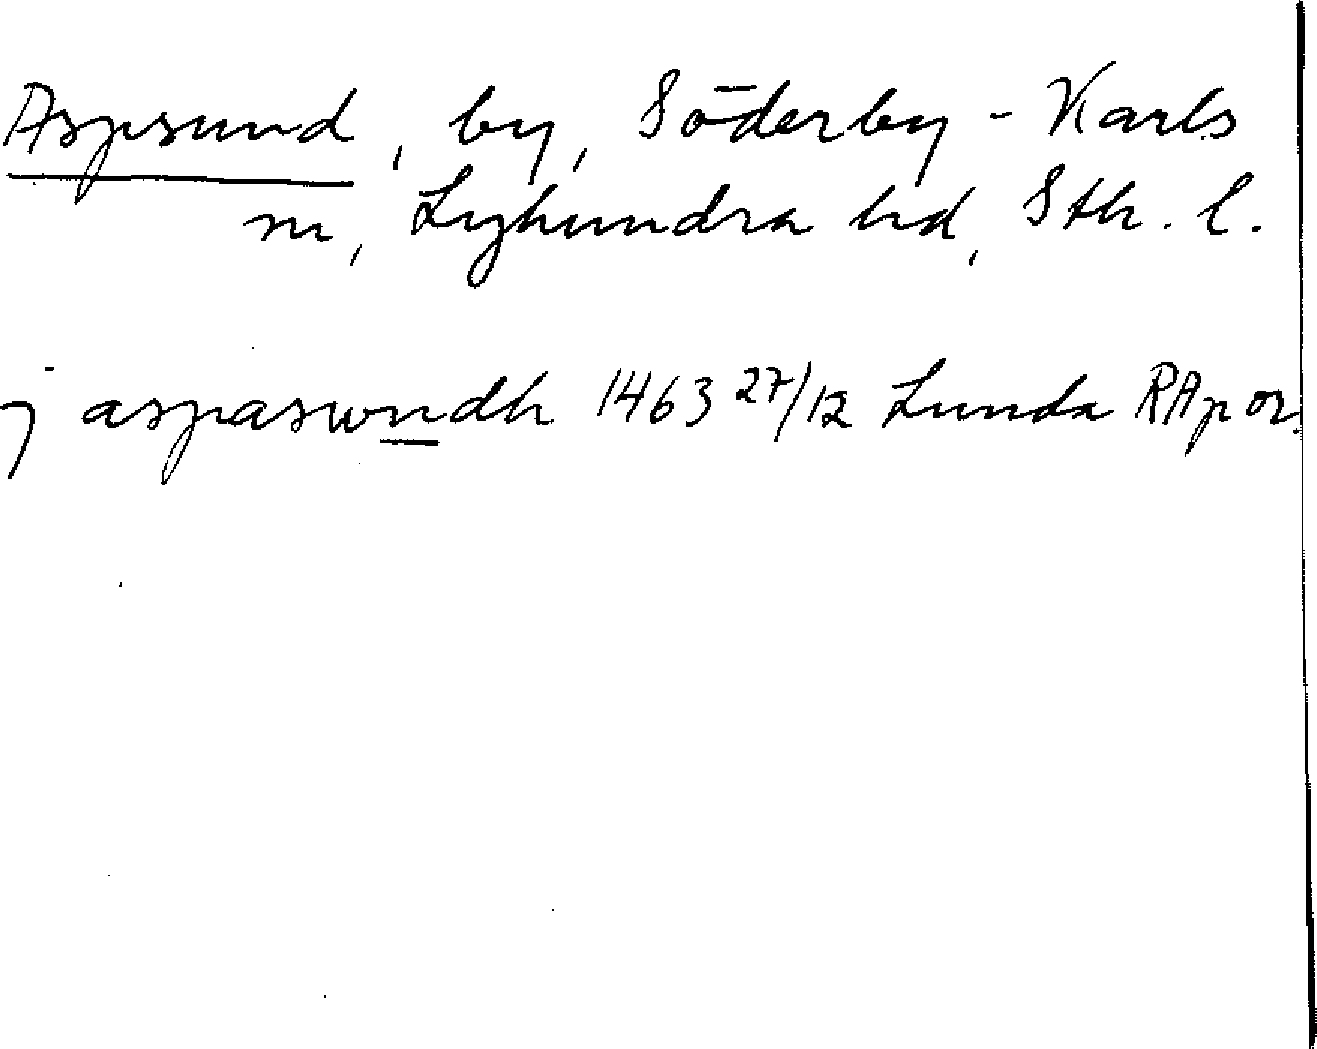 Aspsund, by, Söderby-Karls
sn, Lyhundra hd, Sth. l.
j aspaswndh 1463 27/12 Lunda RAp or.